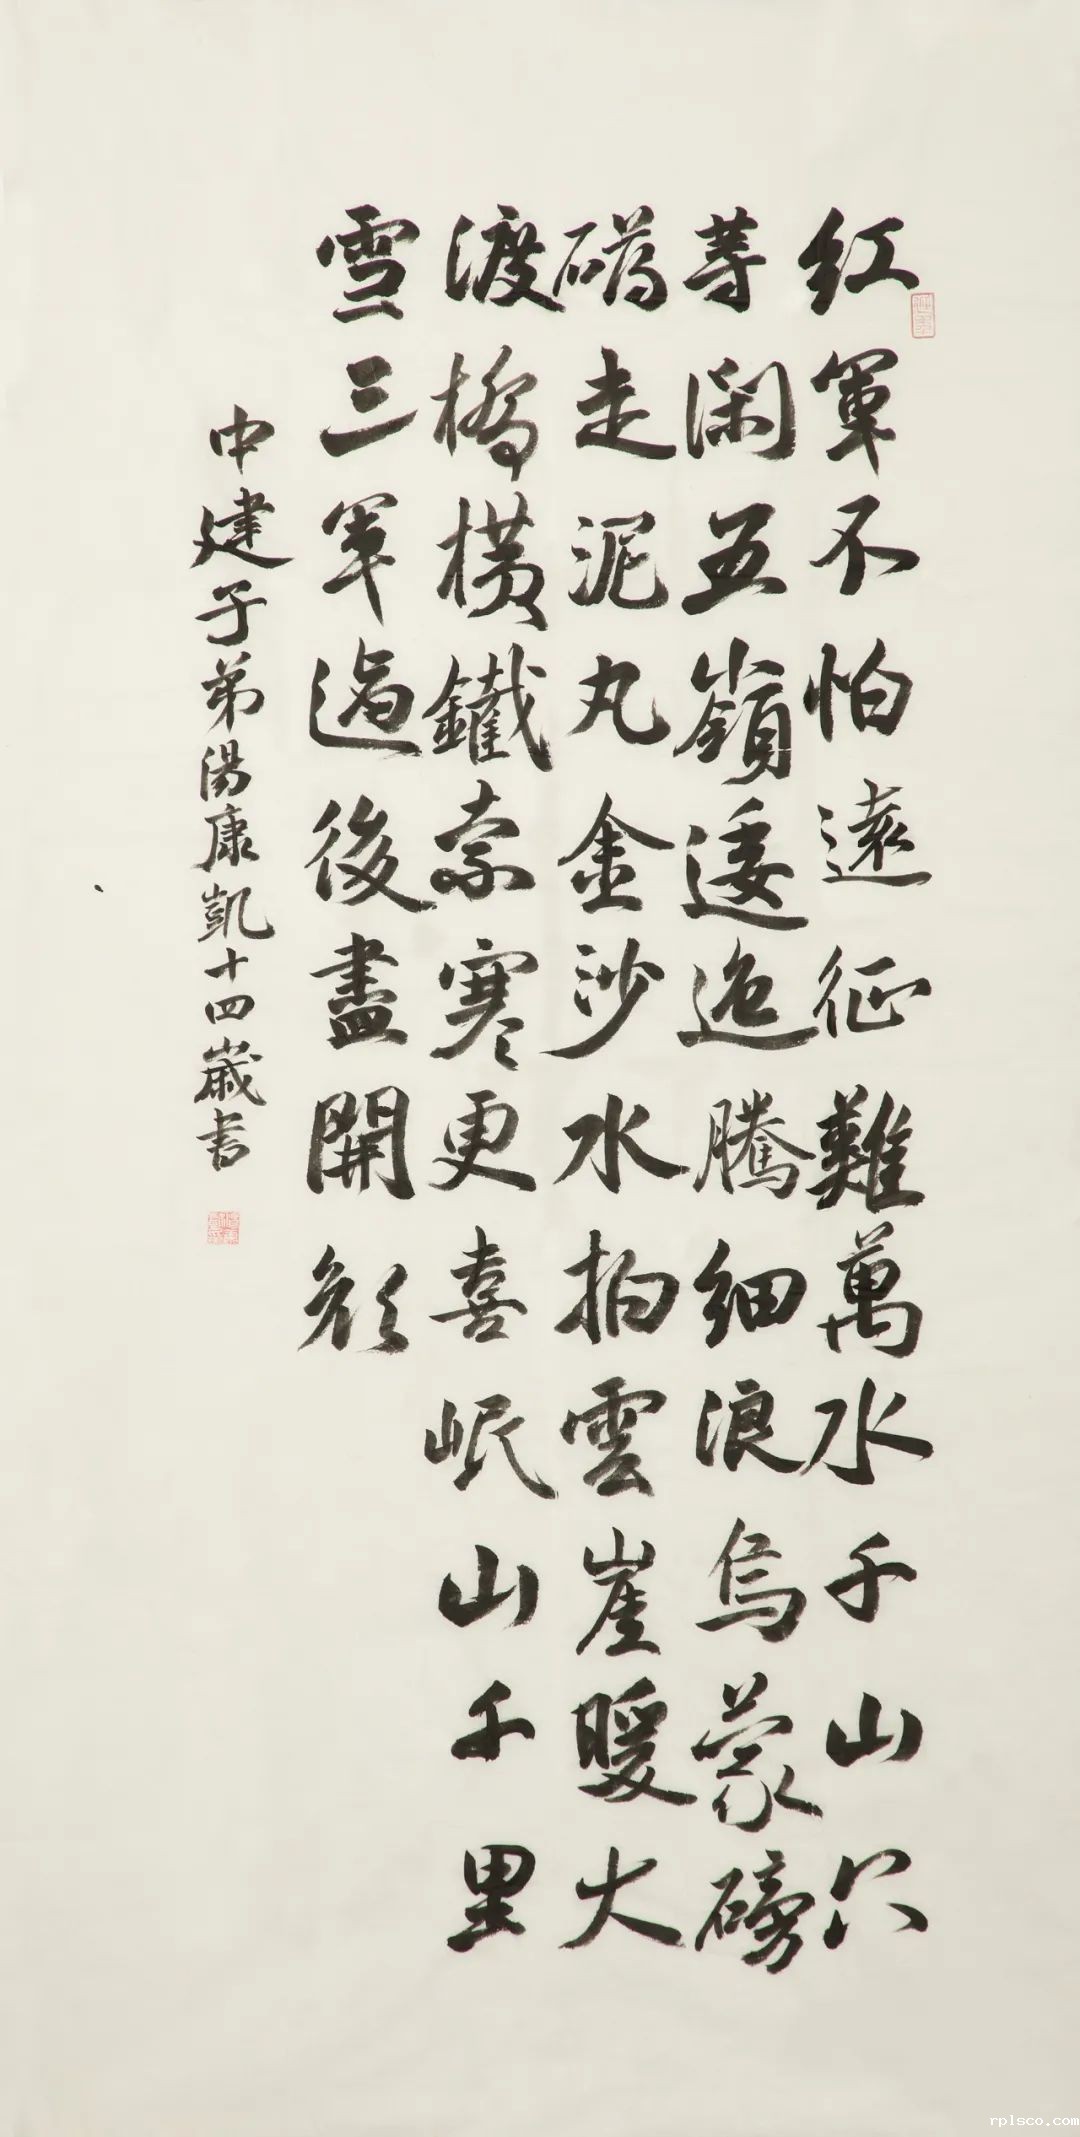 紅軍不怕遠征難萬水千山只
等閑五嶺逶迤騰細浪烏蒙磅
礴走泥丸金沙水拍雲崖暖大
渡橋橫鐵索寒更喜岷山千里
雪三軍過後盡開顏
中建子弟湯康凱十四歲書
rplsco.com